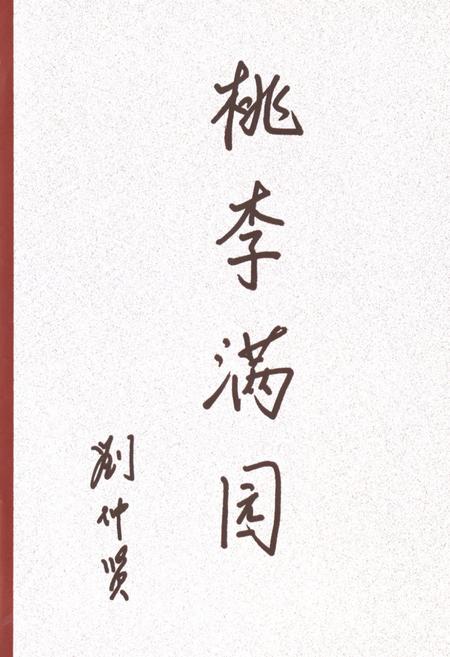 桃李满园
劉仲贤